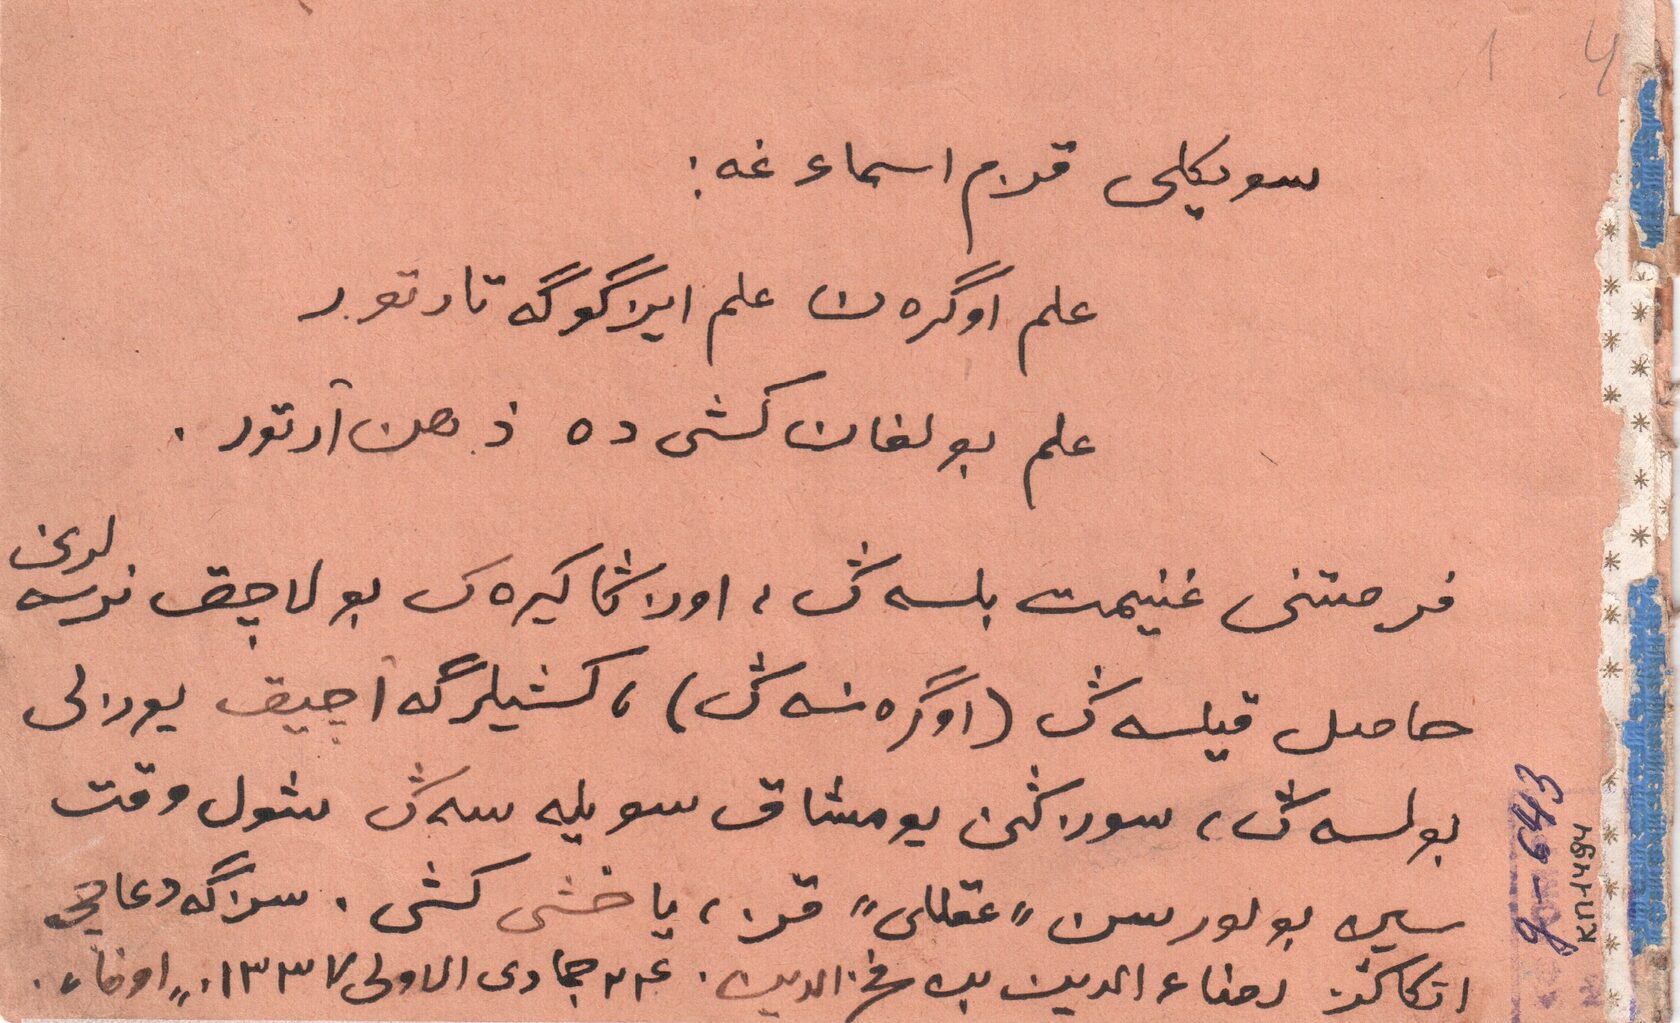 سویکلی قزم اسماء غه:
علم اوگره‌ن علم ایزگوگه تارتور
علم بولغان کشی ده ذهن آرتور.
فرصتنی غنیمت بلسه‌ڭ، اوزڭا کیره‌ک بولاچق نرسه لرنی
حاصل قیلسه‌ڭ (اوگره‌نسه‌ڭ)، کشیلرگه آچیق یوزلی
بولسه‌ڭ، سوزڭنی یومشاق سویله سه‌ڭ شول وقت
سین بولورسن "عقللی" قز، یاخشی کشی. سزگه دعاچی
اتکاڭز رضاء الدین بن فخرالدین. ٢٤ جمادی الاولی ١٣٣٧. "اوفا".
g-643
КП-1494
4